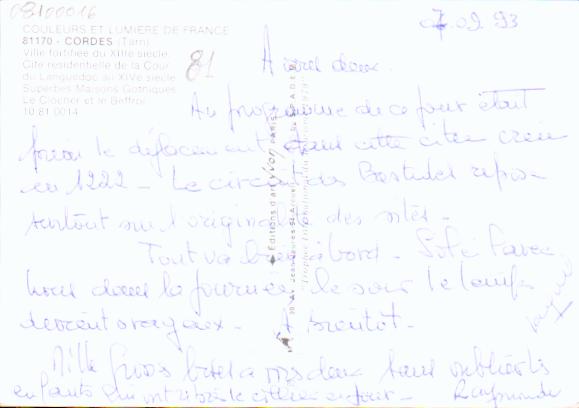 08100016
COULEURS ET LUMIERE DE FRANCE
81170 - CORDES (Tarn)
Ville fortifiée du XIIIe siècle
Cité résidentielle de la Cour
du Languedoc au XIVe siècle
Superbes Maisons Gothiques
Le Clocher et le Beffroi
10 81 0014
81
7.09.93
A vous deux.
Au programme de ce jour était
prévu le déplacement dans cette cité créée
en 1222 - Le circuit des Bastides repose
surtout sur l'originalité des sites -
Tout va bien à bord - Soleil avec
nous dans la journée - le soir le temps
devient orageux - A bientôt -
Mille gros bises à vous deux sans oublier les
enfants qui ont
Raymonde
Editions d'art YVON PARIS